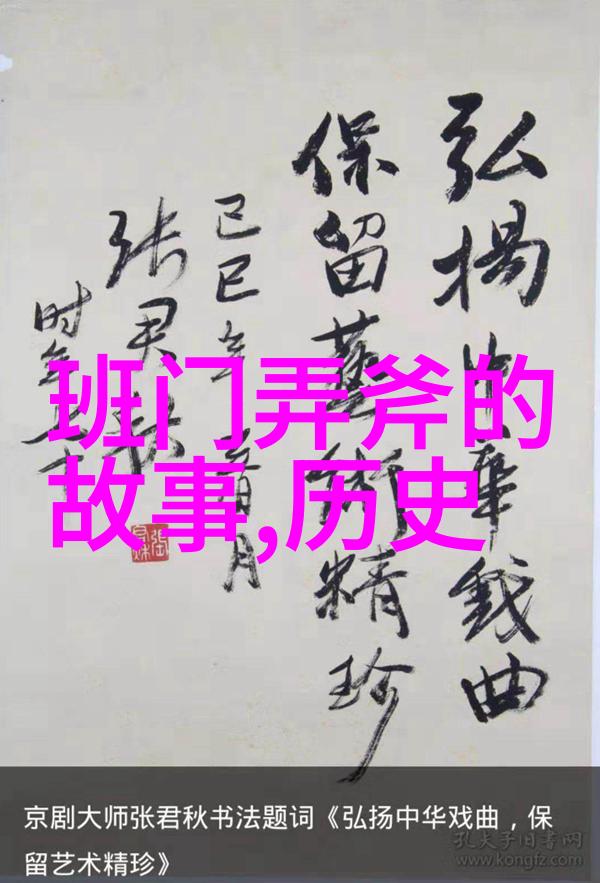 弘揚中華戲曲
保留藝術精珍
己巳年 月
张君秋
时年七十
班门弄斧的
故事,历史
京剧大师张君秋书法题词《弘扬中华戏曲，保
留艺术精珍》
孔夫子旧书网
www.kongfz.com